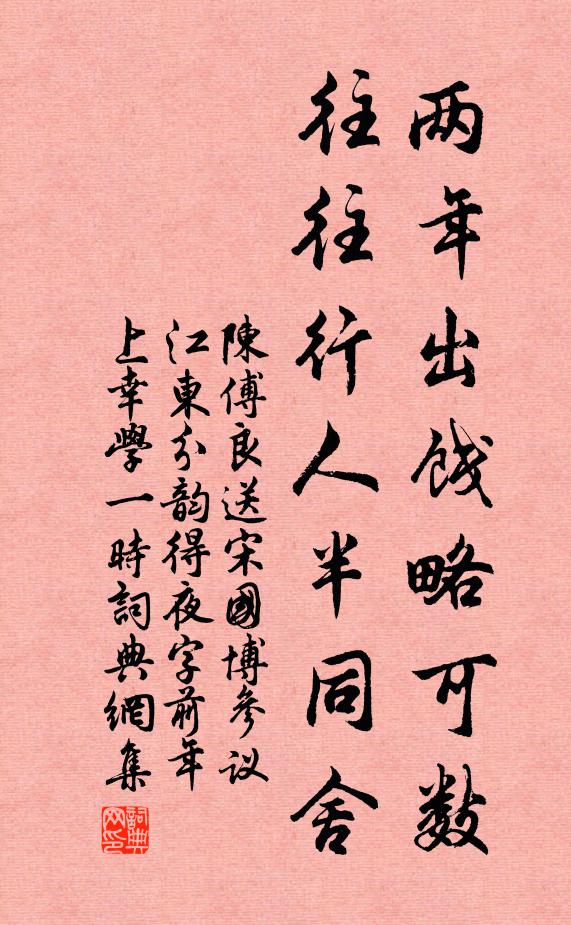 两年出饯略可数
往往行人半同舍
陳傅良送宋國博參议
江東分韵得夜字前年
上幸學一時詞典網集
詞典网印